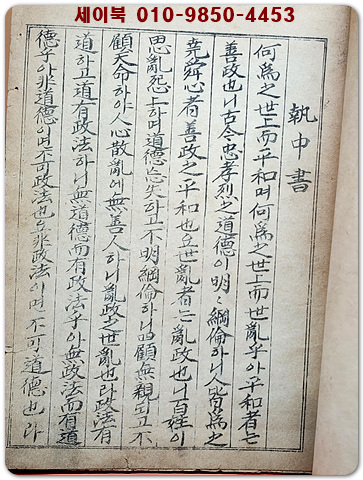 세이북 010-9850-4453
執中書
何爲之世上而平和며何爲之世上而世亂乎아平和者는
善政也니古今忠孝烈之道德이明〻綱倫하니人皆爲之
堯舜心者善政之平和也오世亂者는亂政也니百姓이
思亂怨上하며道德을忘失하고不明綱倫하니四顧無親되고不
顧天命하야人心散亂에無善人하니亂政之世亂也라政法有
道하고道有政法하니無道德而有政法乎아無政法而有道
德乎아非道德이면不可政法也오非政法이면不可道德也라